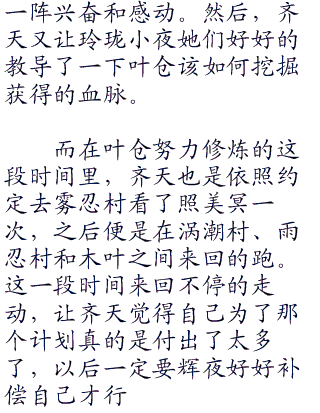 一阵兴奋和感动。然后，齐
天又让玲珑小夜她们好好的
教导了一下叶仓该如何挖掘
获得的血脉。
而在叶仓努力修炼的这
段时间里，齐天也是依照约
定去雾忍村看了照美冥一
次，之后便是在涡潮村、雨
忍村和木叶之间来回的跑。
这一段时间来回不停的走
动，让齐天觉得自己为了那
个计划真的是付出了太多
了，以后一定要辉夜好好补
偿自己才行